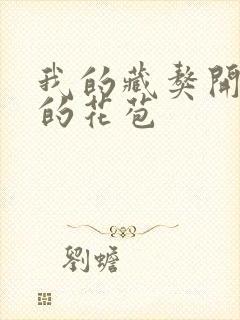 我的藏獒開
的花苞
劉蟾